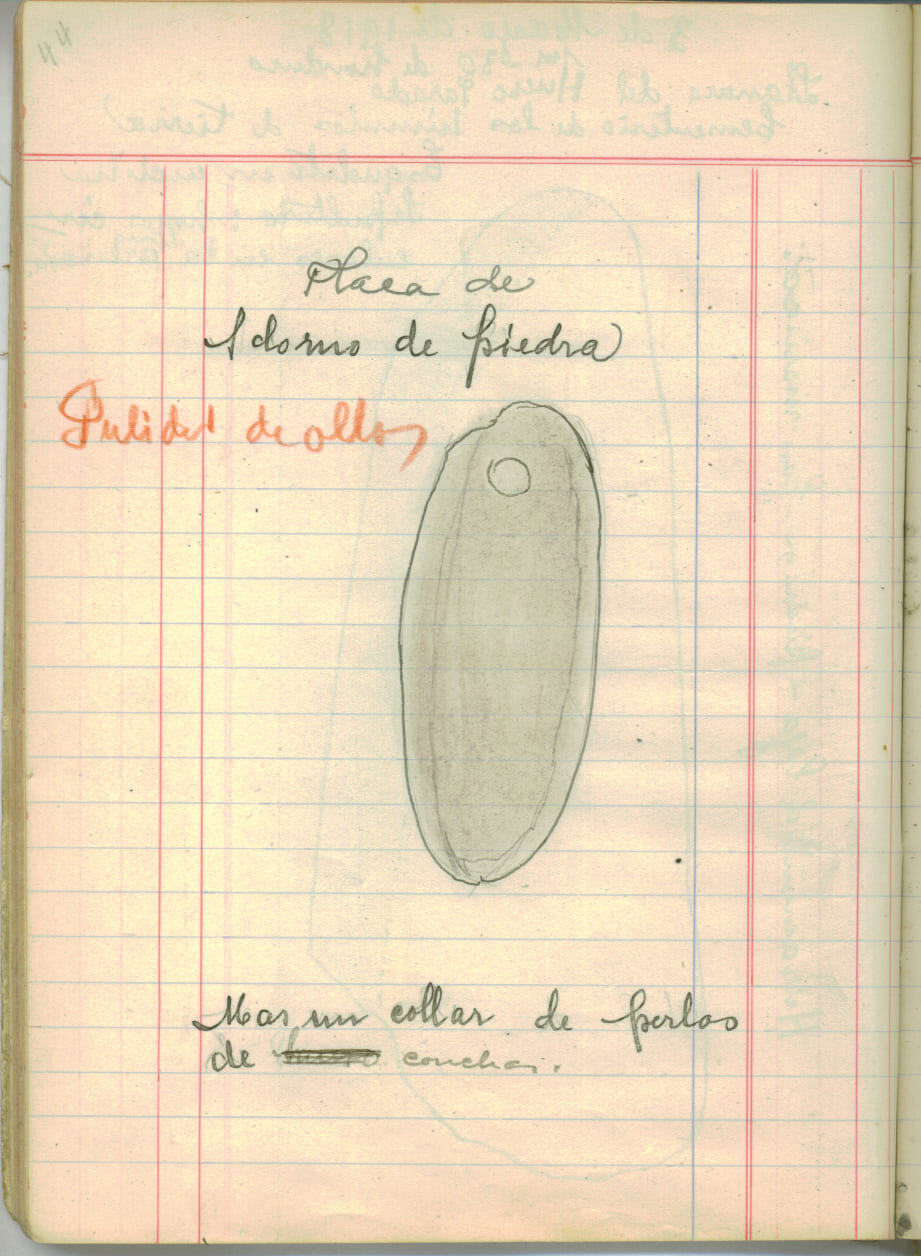 44
Placa de
Adorno de piedra
Pulidor de ollas
Mas un collar de perlas
de hueso conchas.